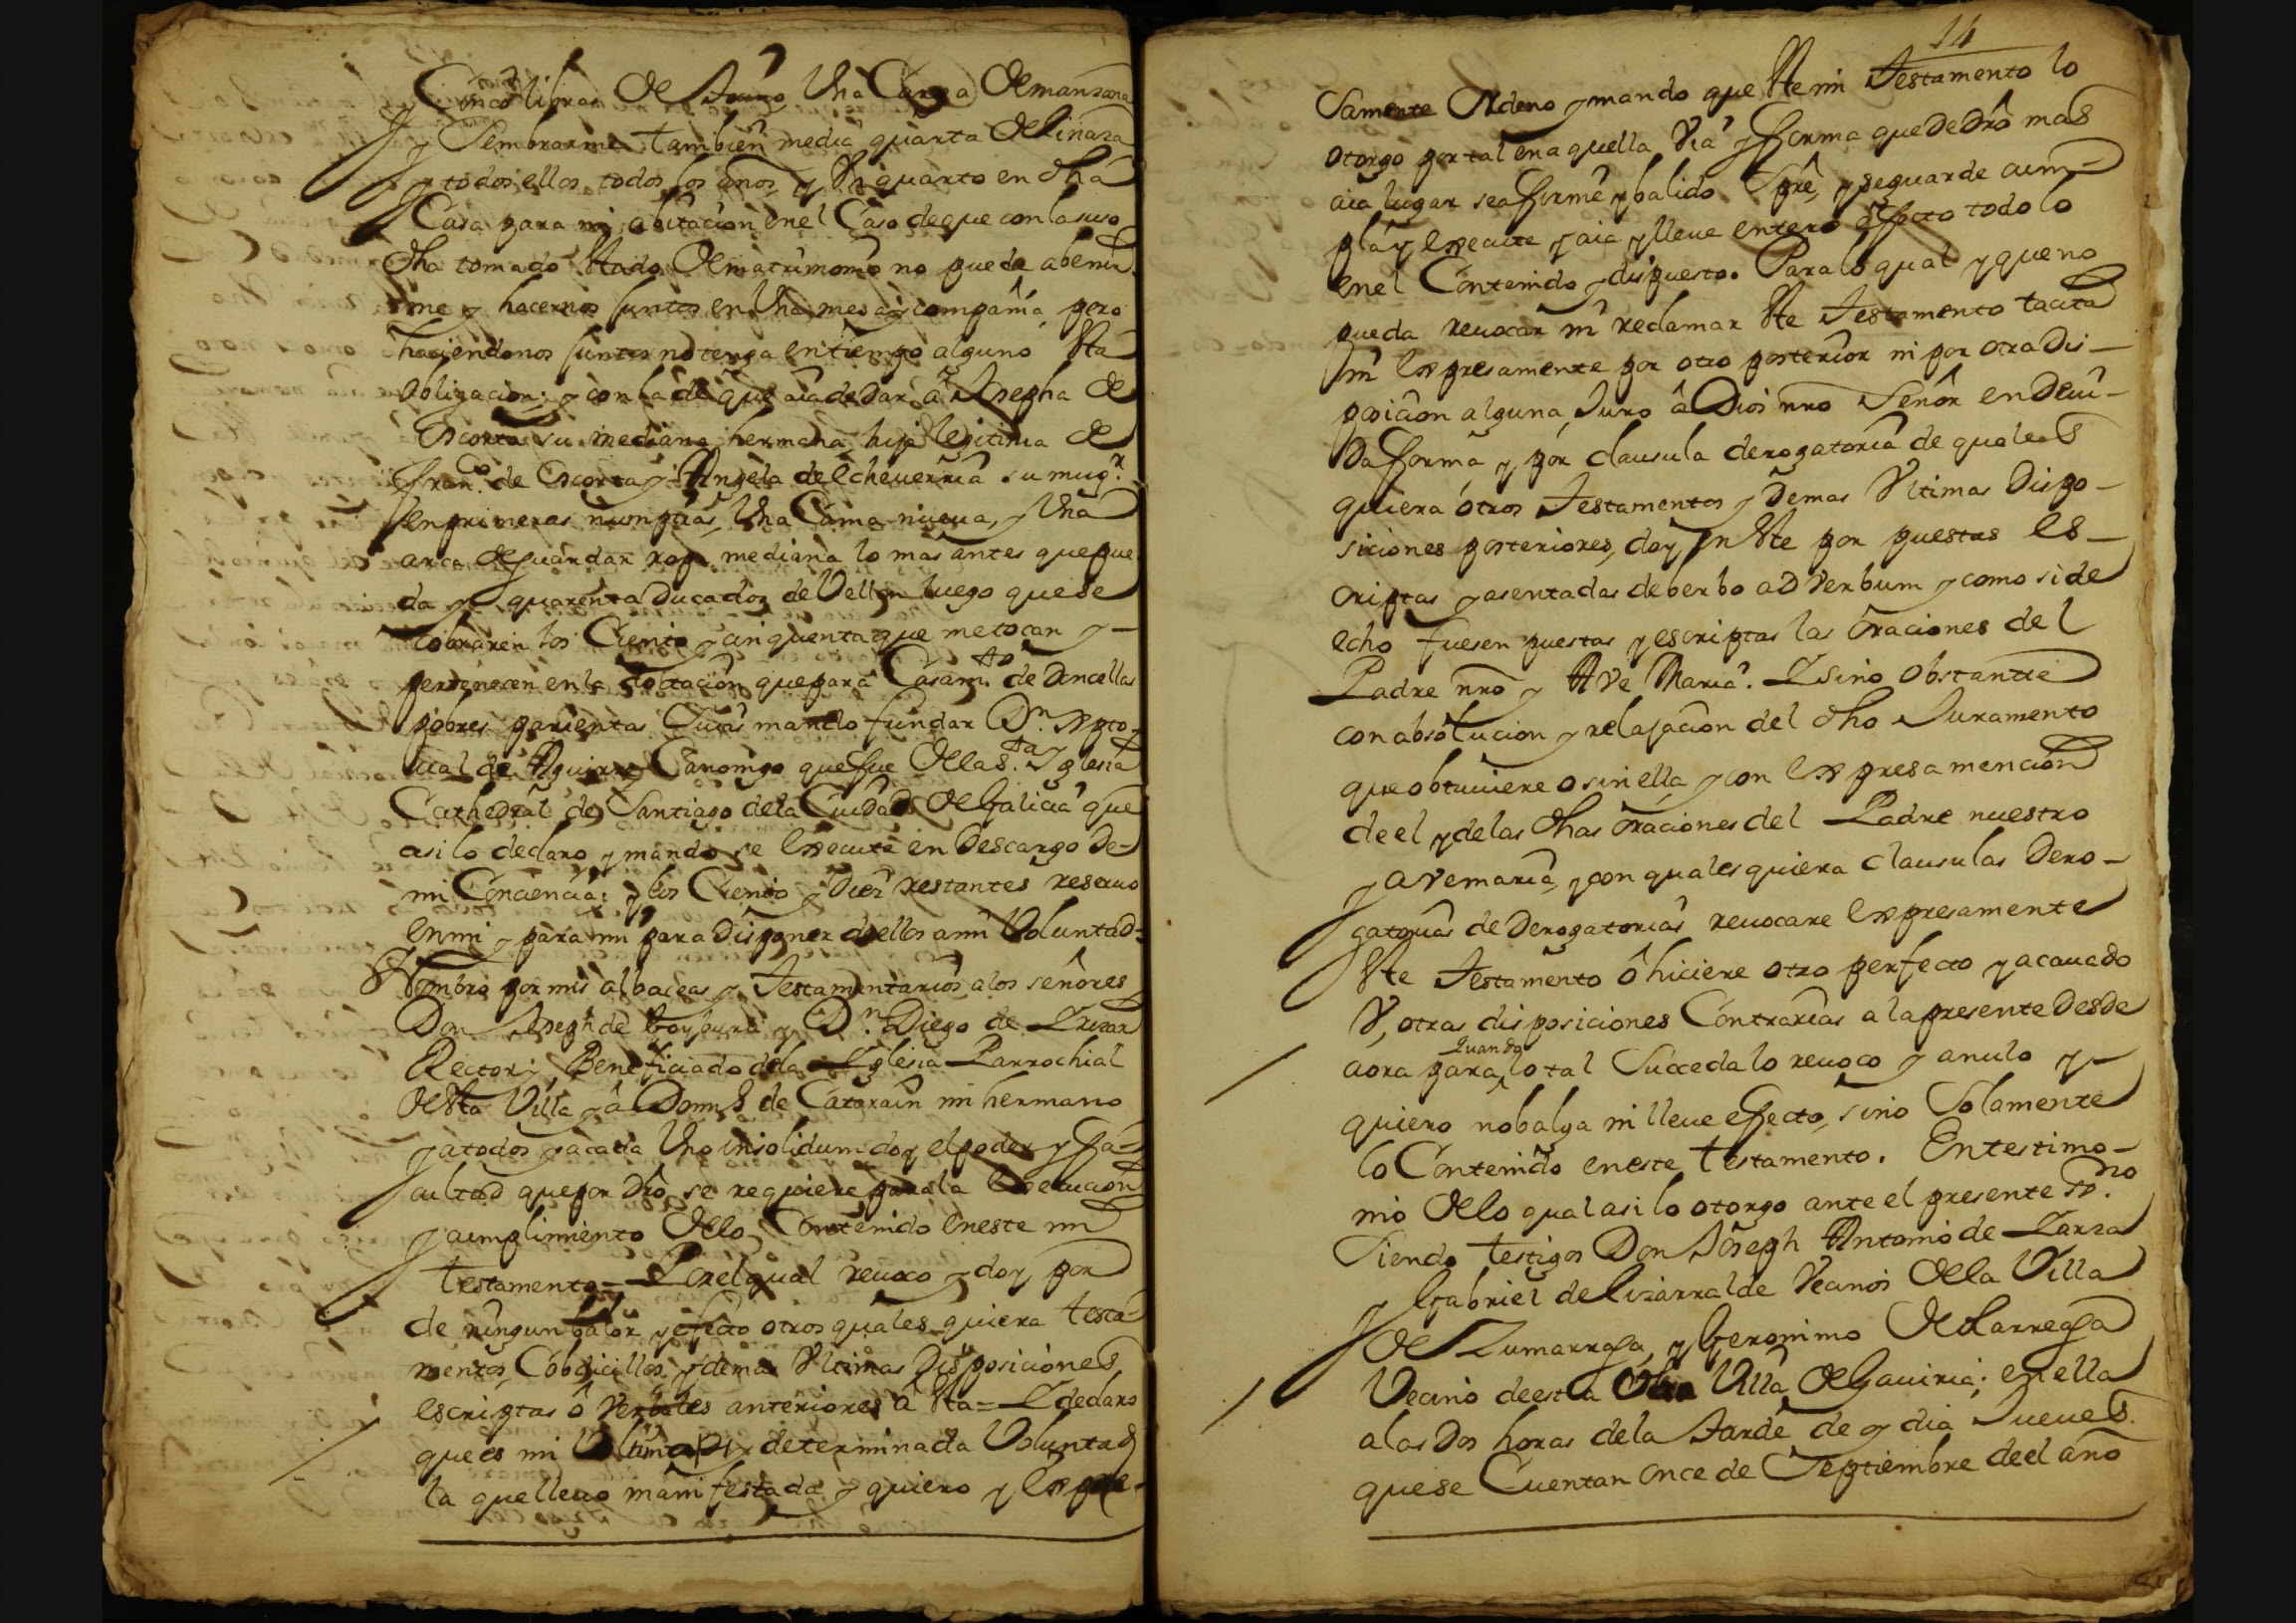 Cinco libras de Tocino, Una Carga de manzana
y Sembrarme tambien media quarta de linaza
y todos ellos todos los años y Un quarto en dha
Casa para mi abitacion en el Caso de que con la suso
dha tomado estado de matrimonio no pueda abenir
me y hacernos juntos en Una mesa y compañia, pero
haciendonos juntos no tenga en tiempo alguno esta
Obligacion; y con la de que aia de dar a Josepha de
Ascorta su mediana hermana, hija legitima de
Fran.co de Ascorta y Angela de Echeuerria su mug.r
en primeras numpcias, Una Cama nueua, y Una
arca de guardar ropa mediana lo mas antes que pue
da y quarenta Ducados de Vellon luego que se
cobraren los Ciento y cinquenta que me tocan y
pertenecen en la dotacion que para Casam.to de Doncellas
pobres parientas suias mando fundar Dn. Xpto
ual de Aguirre Canonigo que fue de la S.ta Yglesia
Cathedral de Santiago de la Ciudad de Galicia que
asi lo declaro y mando se execute en Descargo de
mi Conciencia; y los Ciento y Diez restantes reseruo
en mi y para mi para Disponer de ellos a mi Voluntad=
Nombro por mis albaceas y Testamentarios a los señores
Don Joseph de Goyburu y Dn. Diego de Lizar
Rector y Beneficiado de la Yglesia Parrochial
de esta Villa y a Domis de Catarain mi hermano
y a todos y a cada Uno insolidum doy el poder y fa=
cultad que por dro se requiere para la execucion
y cumplimiento de lo Contenido en este mi
testamento= Por el qual reuoco y doy por
de ningun balor y efecto otros quales quiera testa
mentos, Cobdicillos y demas Ultimas Disposiciones,
escriptas ô Verbales anteriores â esta= Y declaro
que es mi Ultima determinada Voluntad
la que lleuo manifestada y quiero y expre-
14
Samente Ordeno y mando que este mi Testamento lo
otorgo por tal en aquella Via y forma que de Dro mas
aia lugar sea firme y balido Spre, y se guarde cum-
pla y execute y aia y lleue entero efecto todo lo
en el Contenido y dispuesto. Para lo qual y que no
pueda reuocar ni reclamar este Testamento tacita
ni expresamente por otro posterior ni por otra Dis-
posicion alguna, Juro â Dios nro Señor en Deui-
Da forma, y por clausula derogatoria de quales
quiera otros Testamentos y Demas Ultimas Dispo-
siciones posteriores, doy en este por puestas es-
criptas y asentadas de berbo ad Verbum y como si de
echo fuesen puestas y escriptas las Oraciones del
Padre nro y Ave Maria. Y si no obstante
con absolucion y relajacion del dho Juramento
que obtuuiere o sin ella, y con expresa mencion
de el y de las dhas Oraciones del Padre nuestro
y avemaria, y con quales quiera clausulas Dero-
gatorias de Derogatorias reuocare expresamente
este Testamento ô hiciere otro perfecto y acauado
V, otras disposiciones Contrarias a la presente Desde
aora para Quando lo tal Suceda lo reuoco y anulo y
quiero no balga ni lleue efecto, sino Solamente
lo Contenido en este testamento. En testimo-
nio de lo qual asi lo otorgo ante el presente ss.no
Siendo testigos Don Joseph Antonio de Larza
y Gabriel de Lizarralde Vecinos de la Villa
de Zumarraga, y Geronimo de Larrega
Vecino de esta Villa de Gauiria; en ella
a las Dos horas de la tarde de oy dia Jueues
que se Cuentan Once de Septiembre de el año